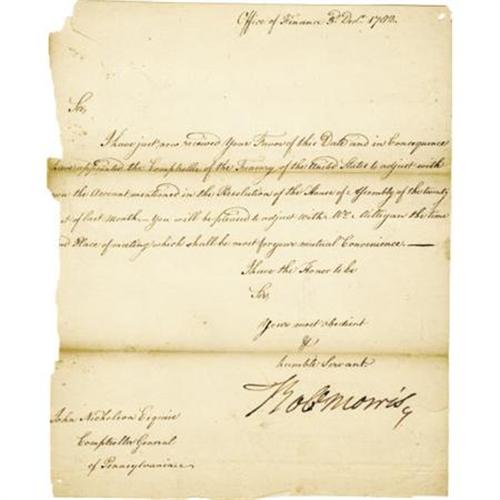 Office of Finance 3d. Decr. 1782.
Sir,
I have just now received Your Favor of this Date and in Consequence
have appointed the Comptroller of the Treasury of the United States to adjust with
you the Account mentioned in the Resolution of the House of Assembly of the twenty
st of last Month — You will be pleased to adjust with Mr. Milligan the time
and Place of meeting which shall be most for your mutual Convenience. —
I have the Honor to be
Sir,
Your most obedient
&
humble Servant
Robt Morris
John Nicholson Esquire
Comptroller General
of Pennsylvania